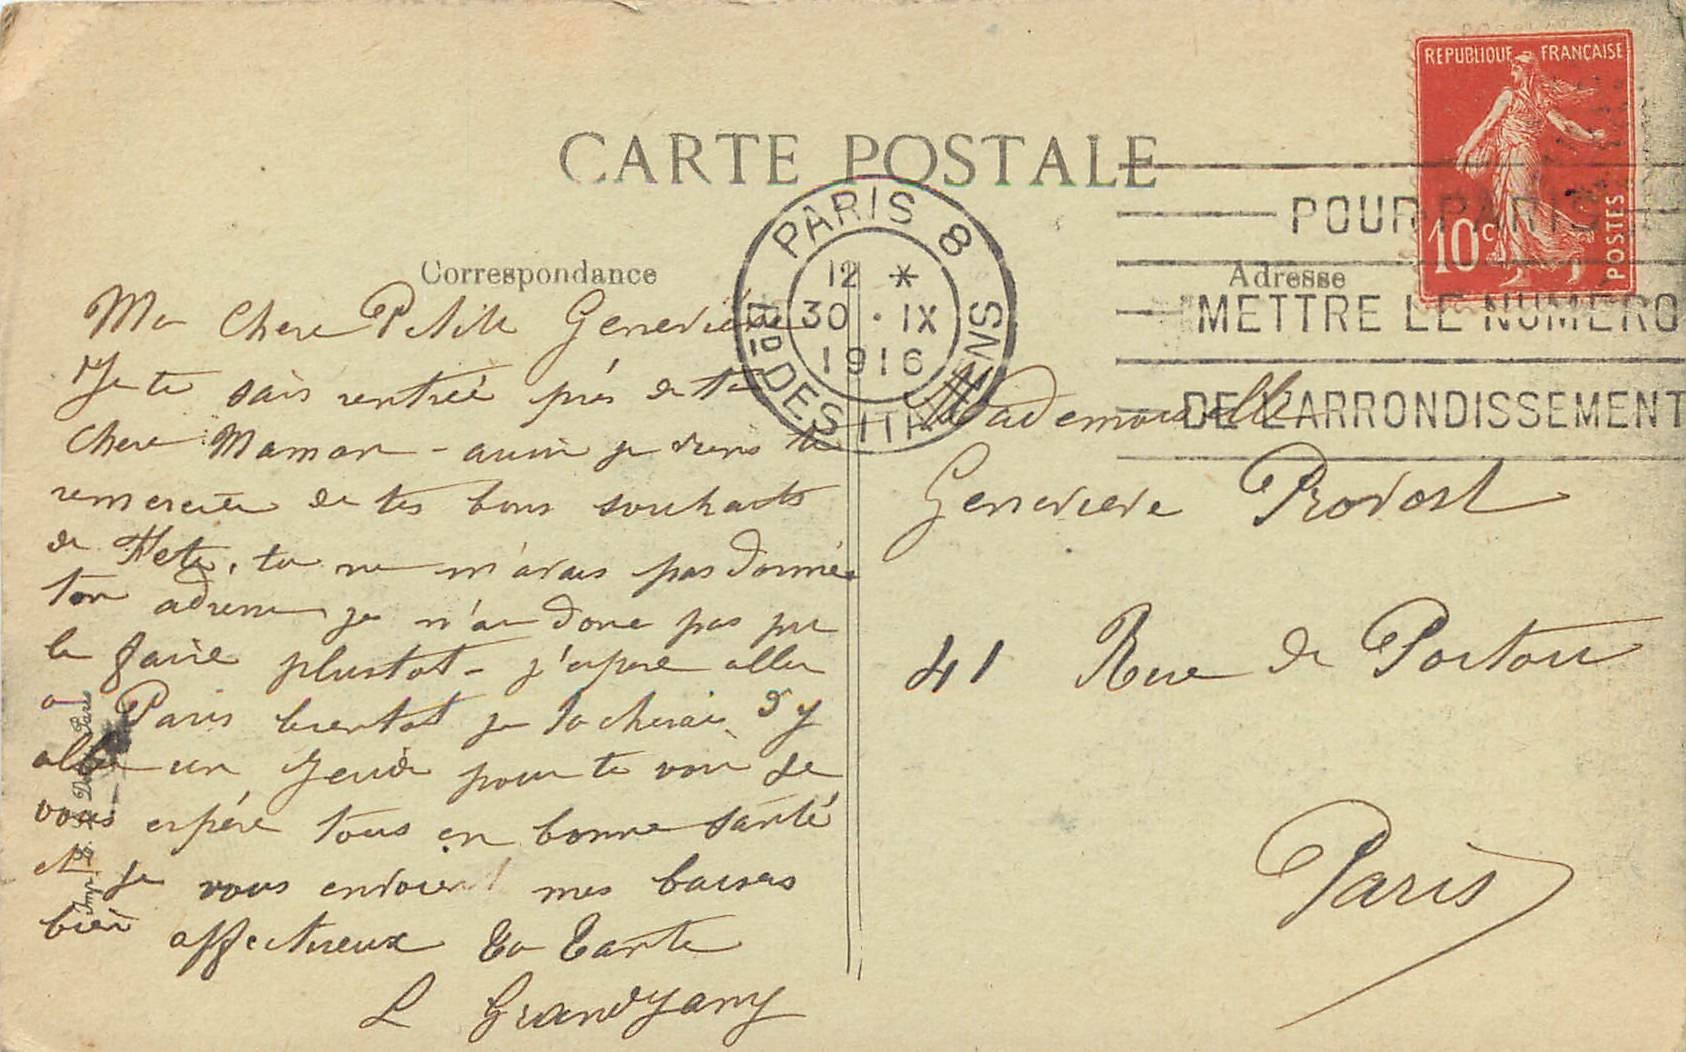 CARTE POSTALE
REPUBLIQUE FRANÇAISE
10c
POSTES
PARIS 8
12 *
30 · IX
1916
Bd DES ITALIENS
POUR PARIS
METTRE LE NUMERO
DE L'ARRONDISSEMENT
Correspondance
Adresse
Ma Chere Petite Genevieve
Je te sais rentrée près de ta
Chere Maman - aussi je viens te
remercier de tes bons souhaits
de Fete, tu ne m'avais pas donnée
ton adresse je n'ai donc pas pu
le faire plustot - j'espere aller
a Paris bientot je tacherai d'y
aller un Jeudi pour te voir je
vous espére tous en bonne santé
et je vous envoie mes baisers
bien affectueux ta tante
L Grandjany
Mademoiselle
Genevieve Provost
41 Rue de Poitou
Paris
Imp. Paris